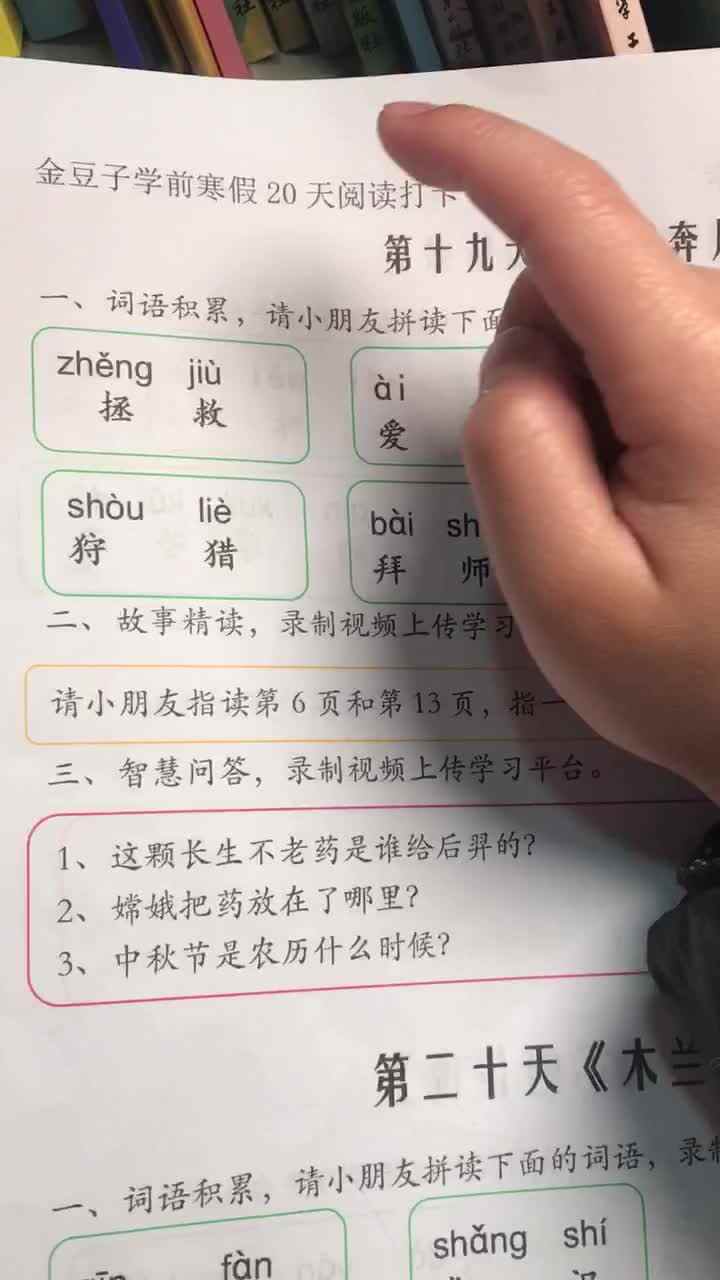 社
版社
学工
金豆子学前寒假20天阅读打卡
第十九天 奔
一、词语积累，请小朋友拼读下面
zhěng jiù
拯 救
ài
爱
shòu liè
狩 猎
bài sh
拜 师
二、故事精读，录制视频上传学习
请小朋友指读第6页和第13页，指一
三、智慧问答，录制视频上传学习平台。
1、这颗长生不老药是谁给后羿的？
2、嫦娥把药放在了哪里？
3、中秋节是农历什么时候？
第二十天《木兰
一、词语积累，请小朋友拼读下面的词语，录制
fàn
shǎng shí